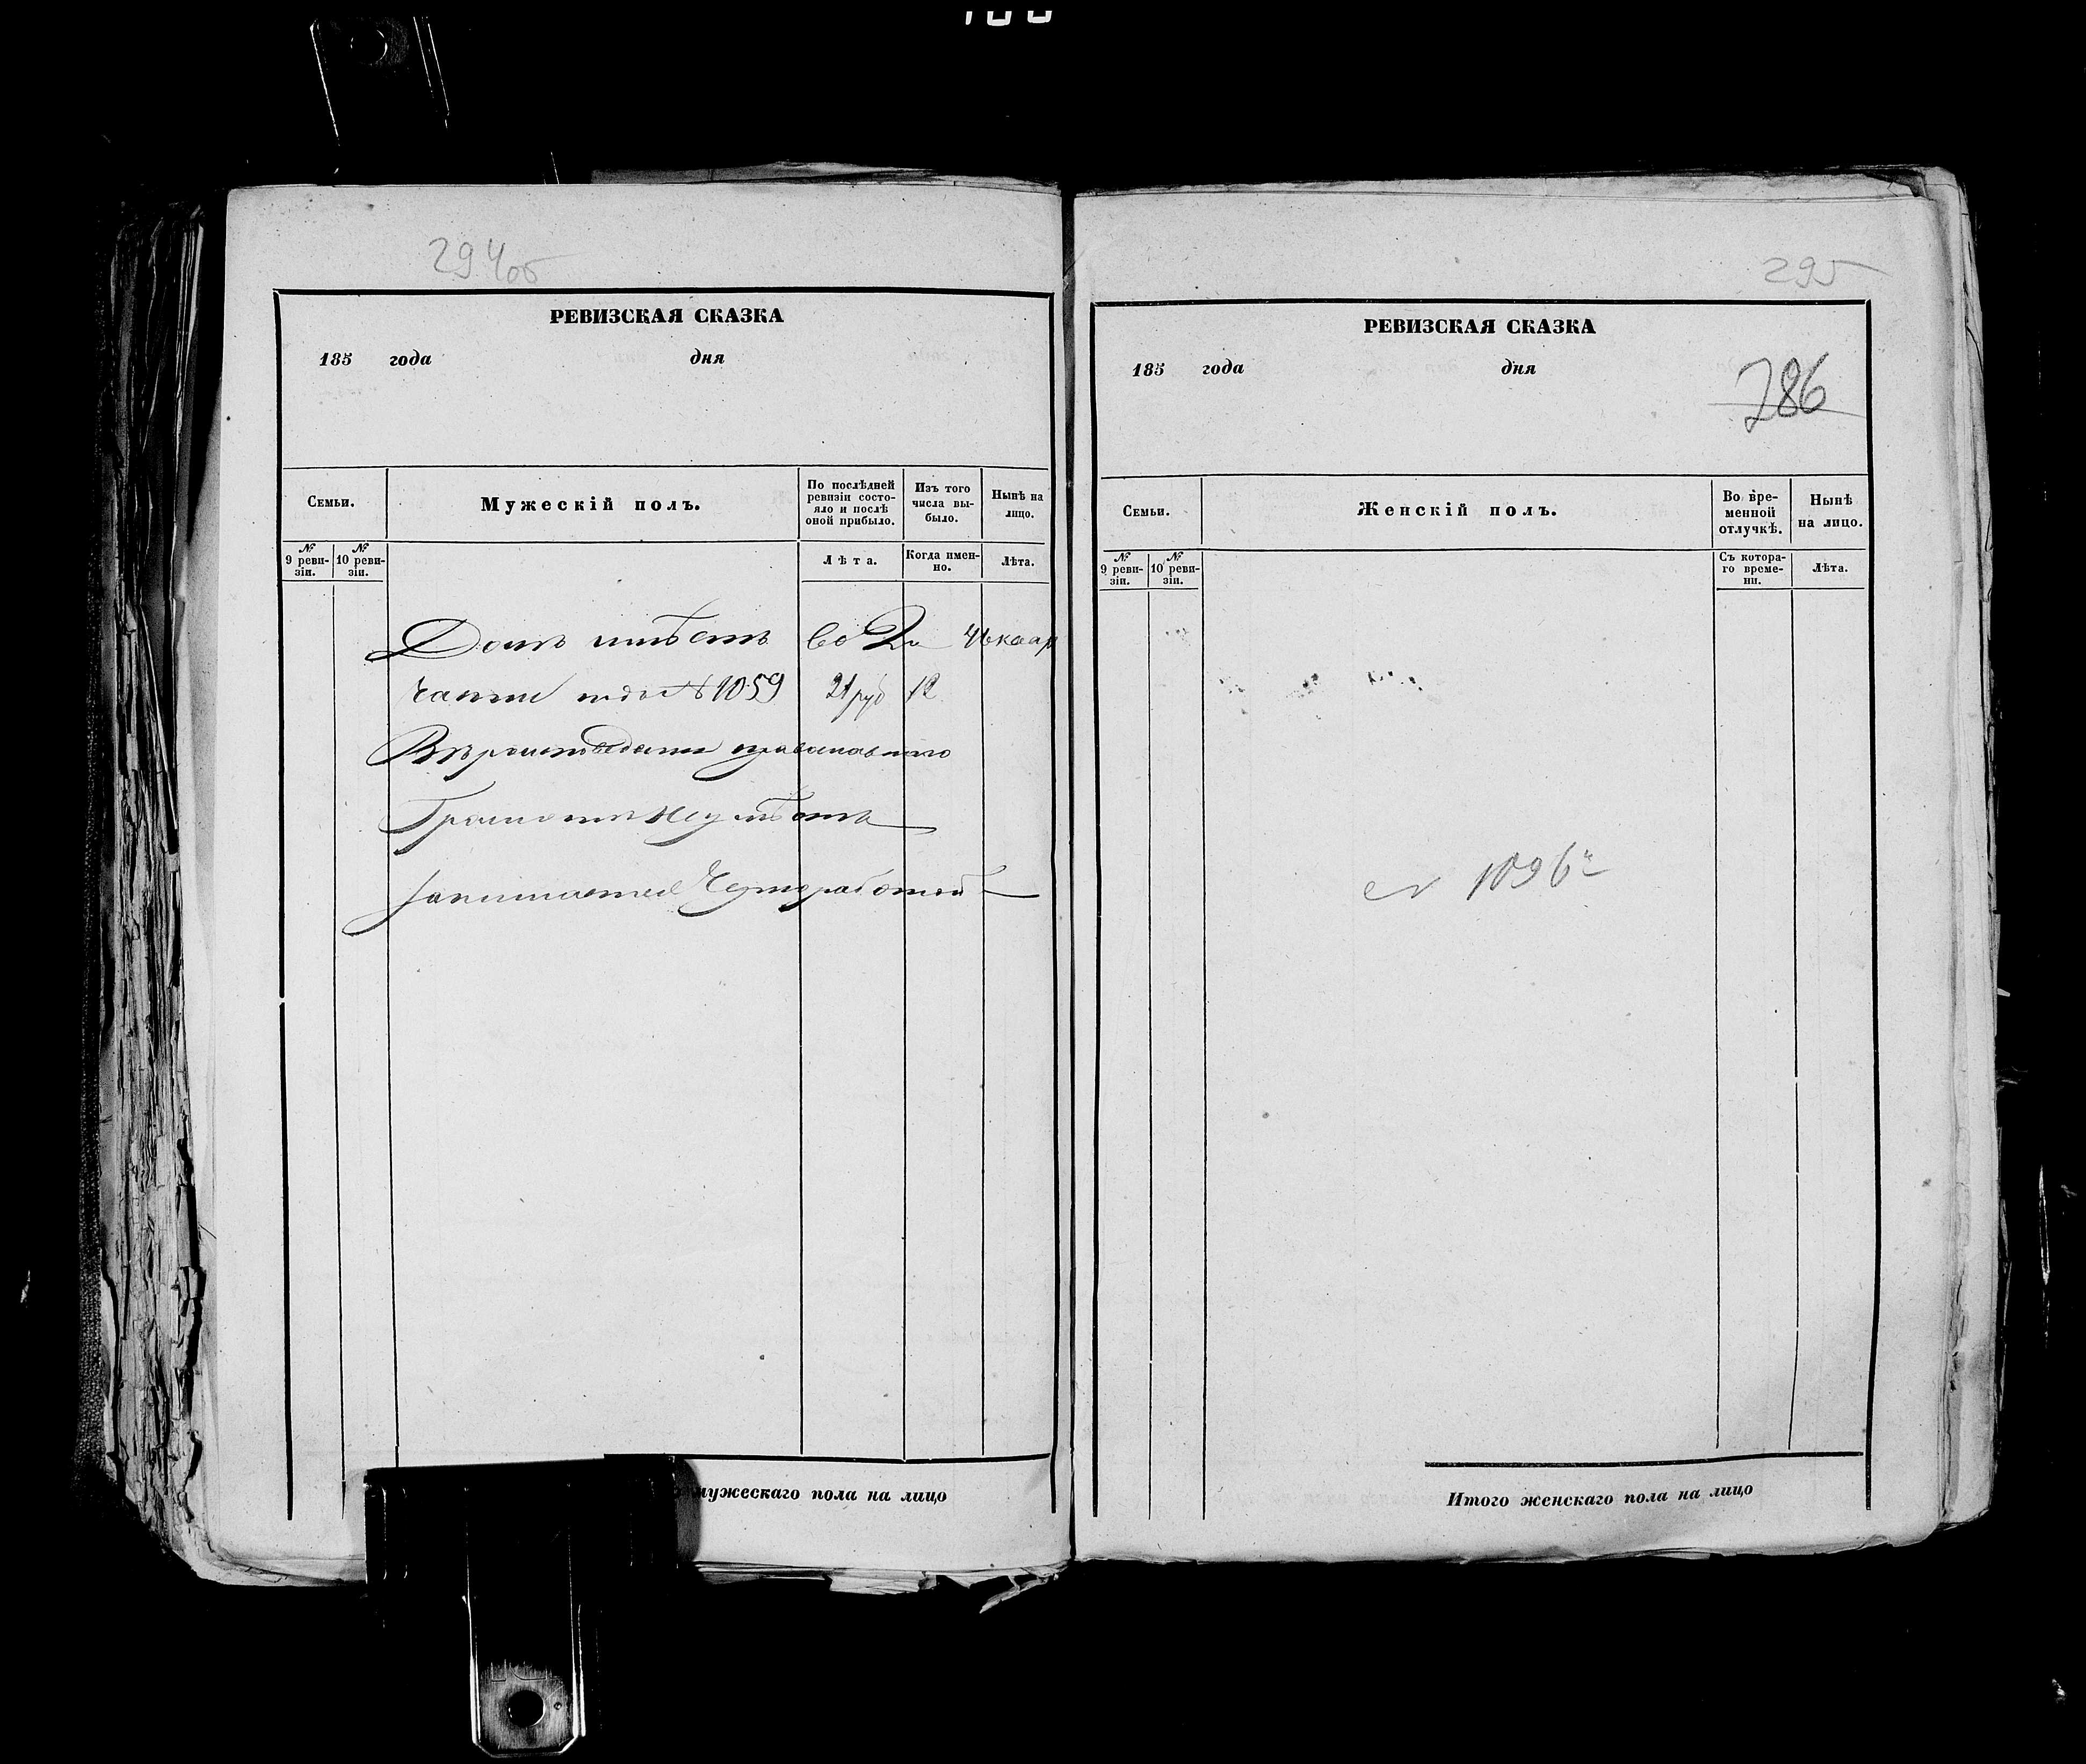 294об
РЕВИЗСКАЯ СКАЗКА
185 года дня
Семьи. Мужескій полъ. По послѣдней ревизіи состояло и послѣ оной прибыло. Изъ того числа выбыло. Нынѣ на лицо.
№ 9 ревизіи. № 10 ревизіи. Лѣта. Когда именно. Лѣта.
Домъ имѣетъ во 2й 4 квар
части подъ № 1059 21 руб 12
Вѣроисповеданія православнаго
Грамоте неумѣетъ
Занимается Черноработой
мужескаго пола на лицо
295
РЕВИЗСКАЯ СКАЗКА
185 года дня
286
Семьи. Женскій полъ. Во временной отлучкѣ. Нынѣ на лицо.
№ 9 ревизіи. № 10 ревизіи. Съ котораго времени. Лѣта.
1096
Итого женскаго пола на лицо